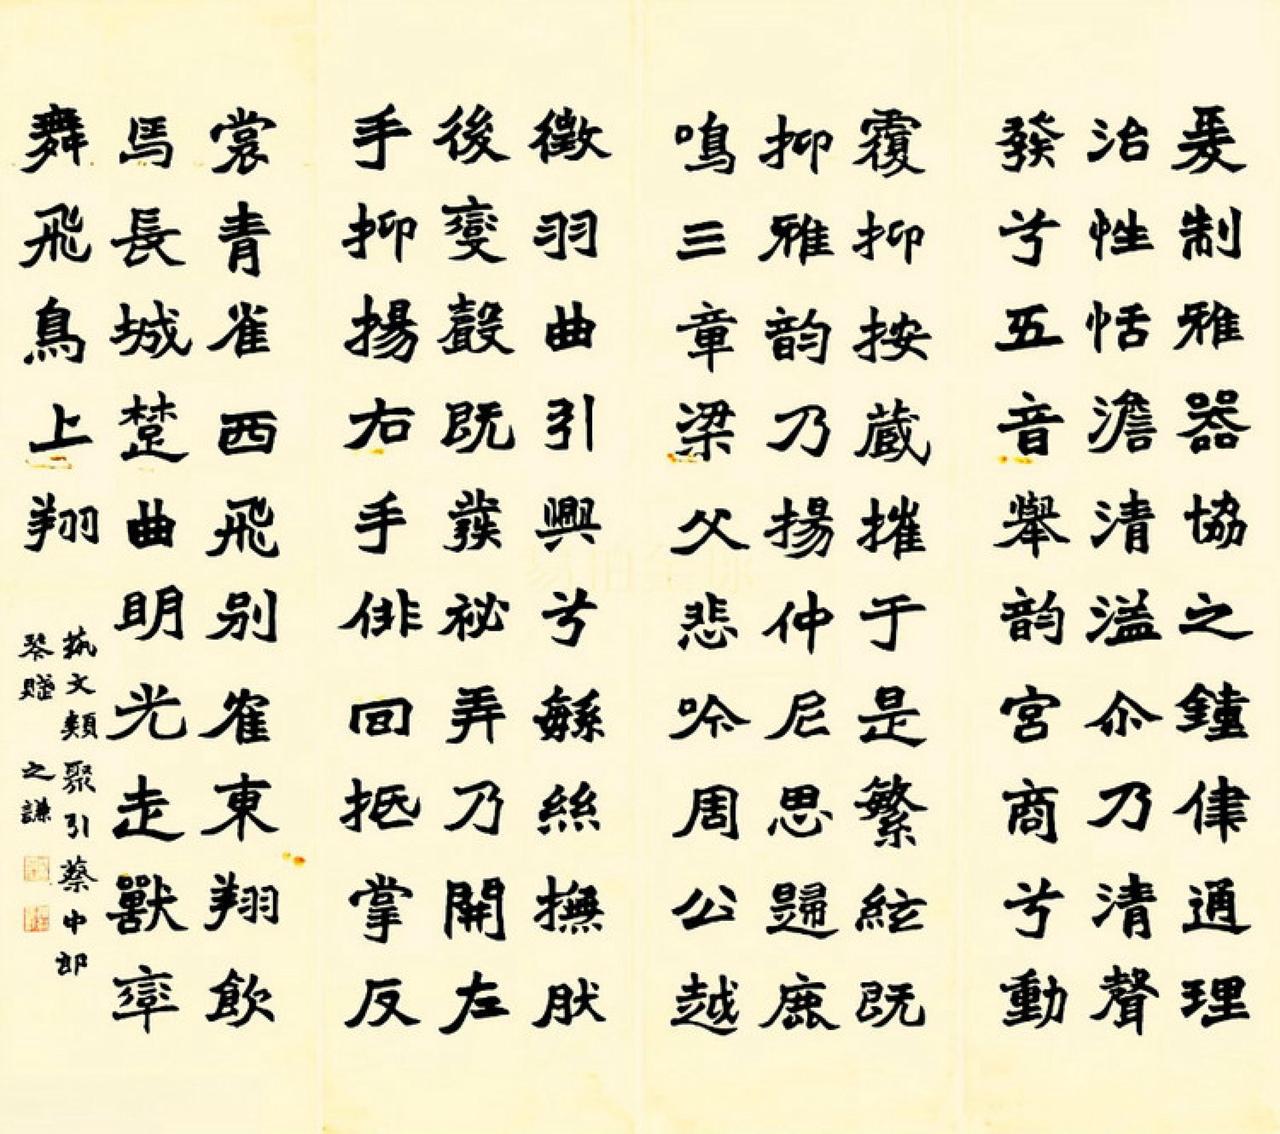 爰制雅器協之鐘律通理
治性恬澹清溢尒乃清聲
發兮五音舉韵宮商兮動
覆抑按蔵摧于是繁絃既
抑雅韵乃揚仲尼思歸鹿
鳴三章梁父悲吟周公越
徵羽曲引興兮緐絲撫肰
後變聲既發祕弄乃開左
手抑揚右手徘回抵掌反
裳青雀西飛别隺東翔飲
馬長城楚曲明光走獸率
舞飛鳥上翔
埶文類聚引蔡中郎
琴賦 之謙